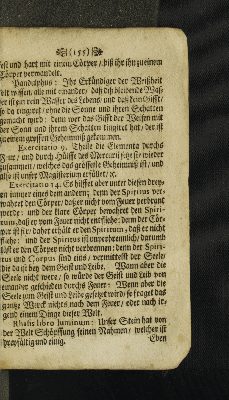 (155)
fest und hart mit einem Cörper/ biß ihr ihn zu einem
Cörper verwandelt.
Pandulphus: Ihr Erkündiger der Weißheit
solt wissen/ alle mit einander/ daß deß bleibende Waß-
ser ist ein rein Wasser des Lebens/ und daß kein Gifft/
so da tingiret/ ohne die Sonne und ihren Schatten
gemacht wird: denn wer das Gifft der Weisen mit
der Sonn und ihrem Schatten tingiret hat/ der ist
zu einem grossen Geheimnuß gekommen.
Exercitatio 9. Theile die Elementa durchs
Feuer/ und durch Hülffe des Mercurii setze sie wieder
zusammen/ welches das grösseste Geheimnuß ist/ und
also ist unser Magisterium erfüllet/ &c.
Exercitatio 14. Es hilffet aber unter diesen drey-
en immer eines dem andern; denn der Spiritus ver-
wahret den Cörper/ daß er nicht vom Feuer verbrunt
werde: und der klare Cörper bewahret den Spiri-
tum, daß er vom Feuer nicht entfliehe: denn der Cör-
per ist fix/ daher erhält er den Spiritum, daß er nicht
fliehe: und der Spiritus ist unverbrennlich/ darumb
läst er den Cörper nicht verbrennen: denn der Spiri-
tus und Corpus sind eins/ vermittelst der Seele/
die da ist bey dem Geist und Leibe. Wann aber die
Seele nicht were/ so würde der Geist und Leib von
einander gescheiden durchs Feuer: Wenn aber die
Seele zum Geist und Leibe gesetzt wird/ so fraget das
gantze Werck nichts nach dem Feuer/ oder nach ir-
gend einem Dinge dieser Welt.
Rhasis libro luminum: Unser Stein hat von
der Welt Schöpffung seinen Nahmen/ welcher ist
dreyfältig und einig.
Eben